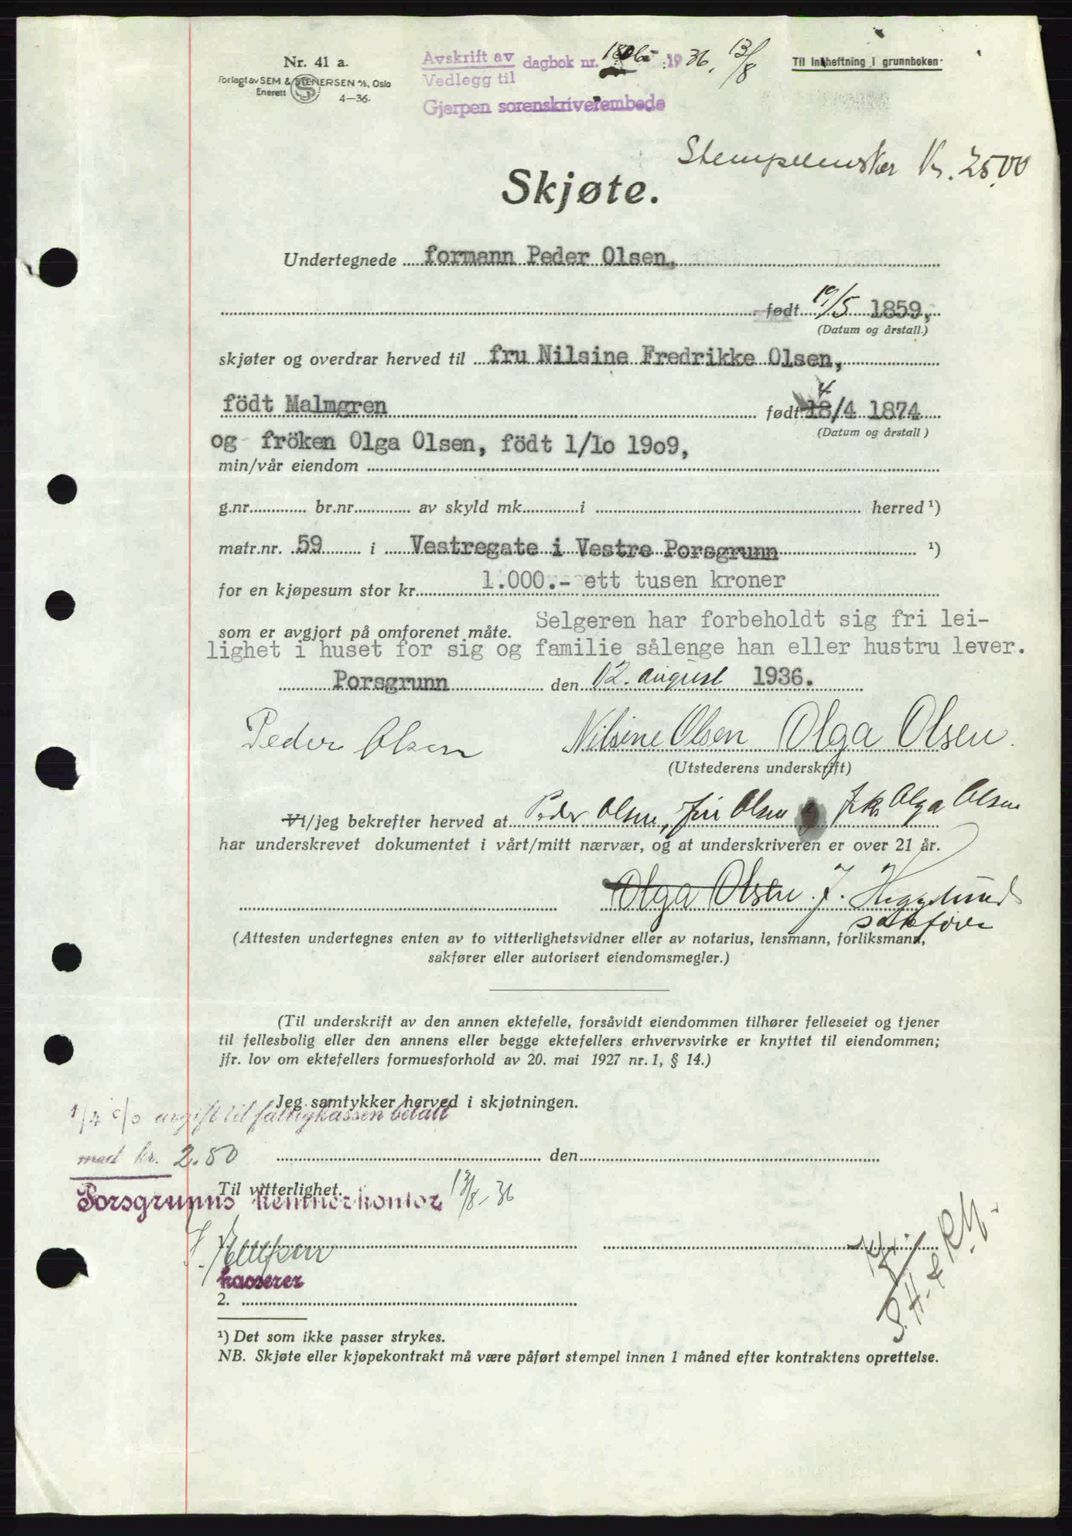 Nr. 41 a.
Forlagt av SEM & STENERSEN A/S, Oslo
Enerett 4—36.
Avskrift av
Vedlegg til
dagbok nr. 1936, 13/8
Gjerpen sorenskriverembede
Til innheftning i grunnboken.
Kr. 25.00
Skjøte.
Undertegnede formann Peder Olsen,
født 19/5 1859,
(Datum og årstall.)
skjøter og overdrar herved til fru Nilsine Fredrikke Olsen,
födt Malmgren født 4/4 1874
(Datum og årstall)
og fröken Olga Olsen, födt 1/1o 19o9,
min/vår eiendom
g.nr. br.nr. av skyld mk. i herred ¹)
matr.nr. 59 i Vestregate i Vestre Porsgrunn ¹)
for en kjøpesum stor kr. 1.000.- ett tusen kroner
som er avgjort på omforenet måte. Selgeren har forbeholdt sig fri lei-
lighet i huset for sig og familie sålenge han eller hustru lever.
Porsgrunn den 12. august 1936.
Peder Olsen Nilsine Olsen Olga Olsen.
(Utstederens underskrift)
Vi/jeg bekrefter herved at Peder Olsen, fru Olsen og frk Olga Olsen
har underskrevet dokumentet i vårt/mitt nærvær, og at underskriveren er over 21 år.
Olga Olsen J.
sakfører
(Attesten undertegnes enten av to vitterlighetsvidner eller av notarius, lensmann, forliksmann,
sakfører eller autorisert eiendomsmegler.)
(Til underskrift av den annen ektefelle, forsåvidt eiendommen tilhører felleseiet og tjener
til fellesbolig eller den annens eller begge ektefellers erhvervsvirke er knyttet til eiendommen;
jfr. lov om ektefellers formuesforhold av 20. mai 1927 nr. 1, § 14.)
Jeg samtykker herved i skjøtningen.
1/4 c/o avgift til fattigkassen betalt
med kr. 2.50
den
Til vitterlighet.
Porsgrunns kemnerkontor 13/8-36
1.
kasserer
2.
¹) Det som ikke passer strykes.
NB. Skjøte eller kjøpekontrakt må være påført stempel innen 1 måned efter kontraktens oprettelse.